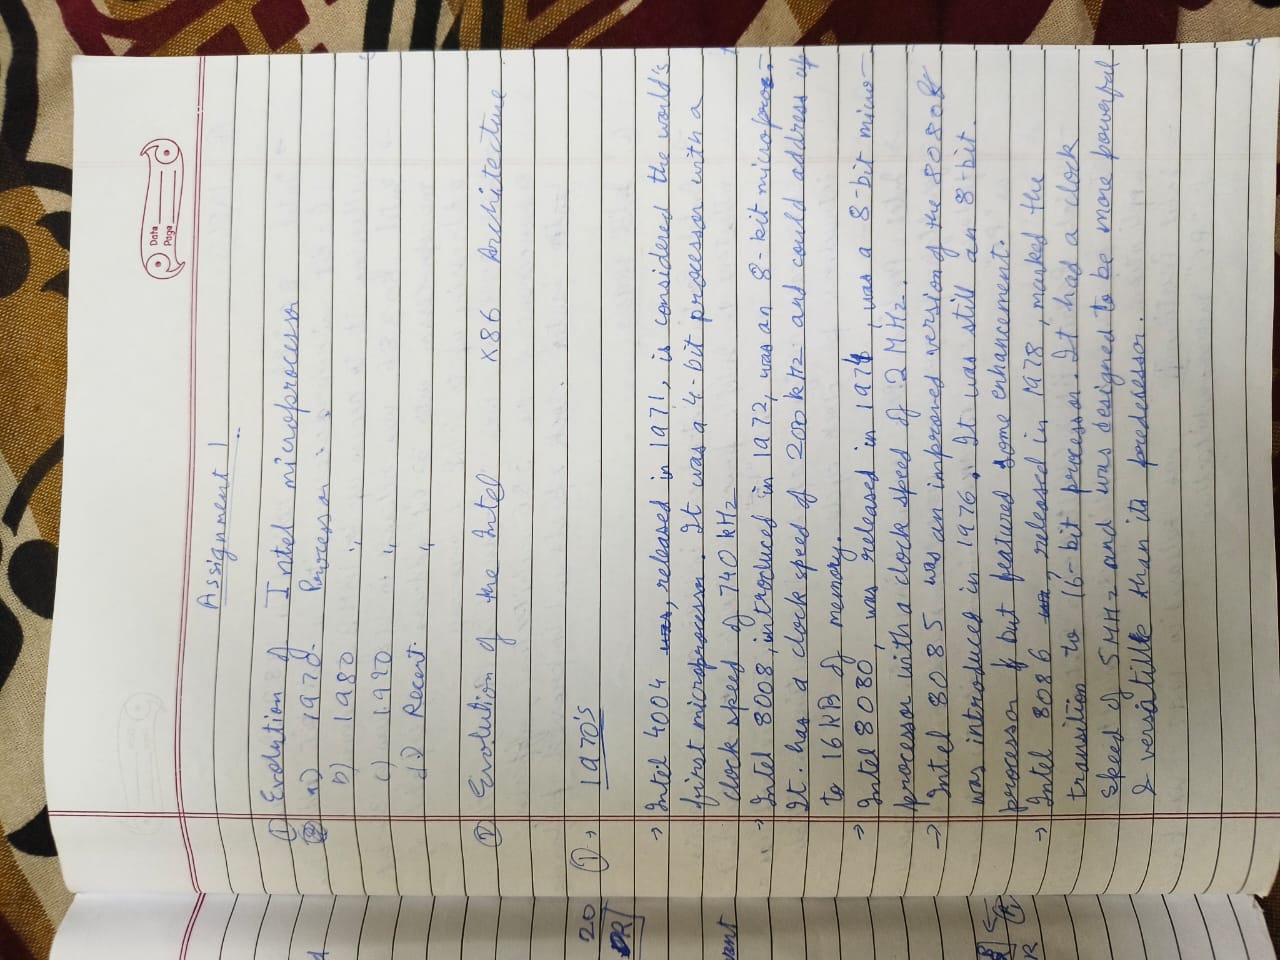 Date
Page
Assignment 1
① Evolution of Intel microprocessor
② a) 1970- Processor :
b) 1980 "
c) 1990 "
d) Recent. "
② Evolution of the Intel X86 Architecture
20
① → 1970's
R
→ Intel 4004 was, released in 1971, is considered the world's
first microprocessor. It was a 4-bit processor with a
clock speed of 740 kHz
→ Intel 8008, introduced in 1972, was an 8-bit micropros-
It. has a clock speed of 200 kHz and could address up
to 16 KB of memory.
→ Intel 8080, was released in 1974, was a 8-bit micro-
processor with a clock speed of 2 MHz.
→ Intel 8085 was an improved version of the 8080 &
was introduced in 1976. It was still an 8-bit.
processor but featured some enhancement.
R
→ Intel 8086 was, released in 1978, marked the
transition to 16-bit processor. It had a clock
speed of 5 MHz and was designed to be more powerful
& versatille than its predecessor.